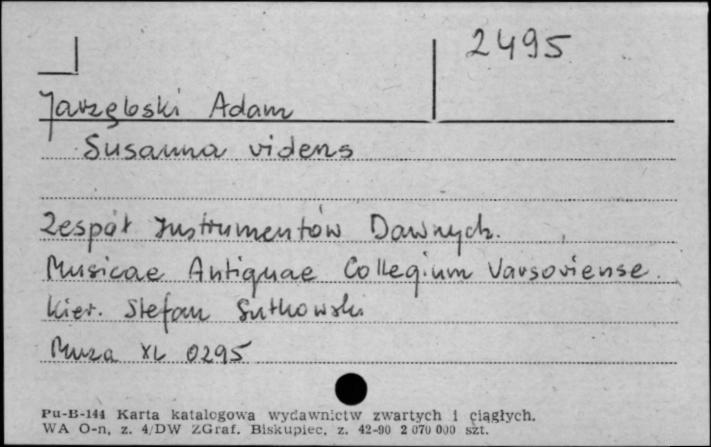 2495
Jarzębski Adam
Susanna videns
Zespół Instrumentów Dawnych.
Musicae Antiquae Collegium Varsoviense.
Kier. Stefan Sutkowski
Muza XL 0295
Pu-B-144 Karta katalogowa wydawnictw zwartych i ciągłych.
WA O-n, z. 4/DW ZGraf. Biskupiec, z. 42-90 2 070 000 szt.